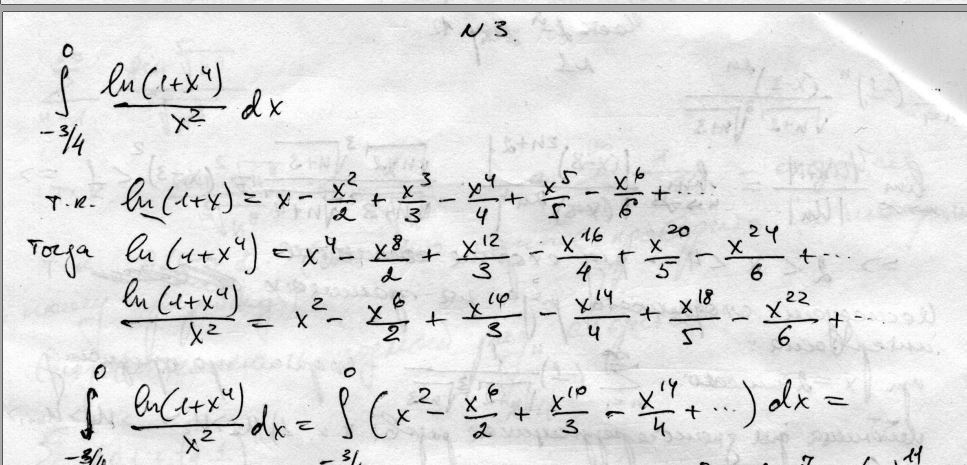 N 3.
∫_{-3/4}^{0} ln(1+x⁴)/x² dx
т.к. ln(1+x) = x - x²/2 + x³/3 - x⁴/4 + x⁵/5 - x⁶/6 + ...
Тогда ln(1+x⁴) = x⁴ - x⁸/2 + x¹²/3 - x¹⁶/4 + x²⁰/5 - x²⁴/6 + ...
ln(1+x⁴)/x² = x² - x⁶/2 + x¹⁰/3 - x¹⁴/4 + x¹⁸/5 - x²²/6 + ...
∫_{-3/4}^{0} ln(1+x⁴)/x² dx = ∫_{-3/4}^{0} (x² - x⁶/2 + x¹⁰/3 - x¹⁴/4 + ...) dx =